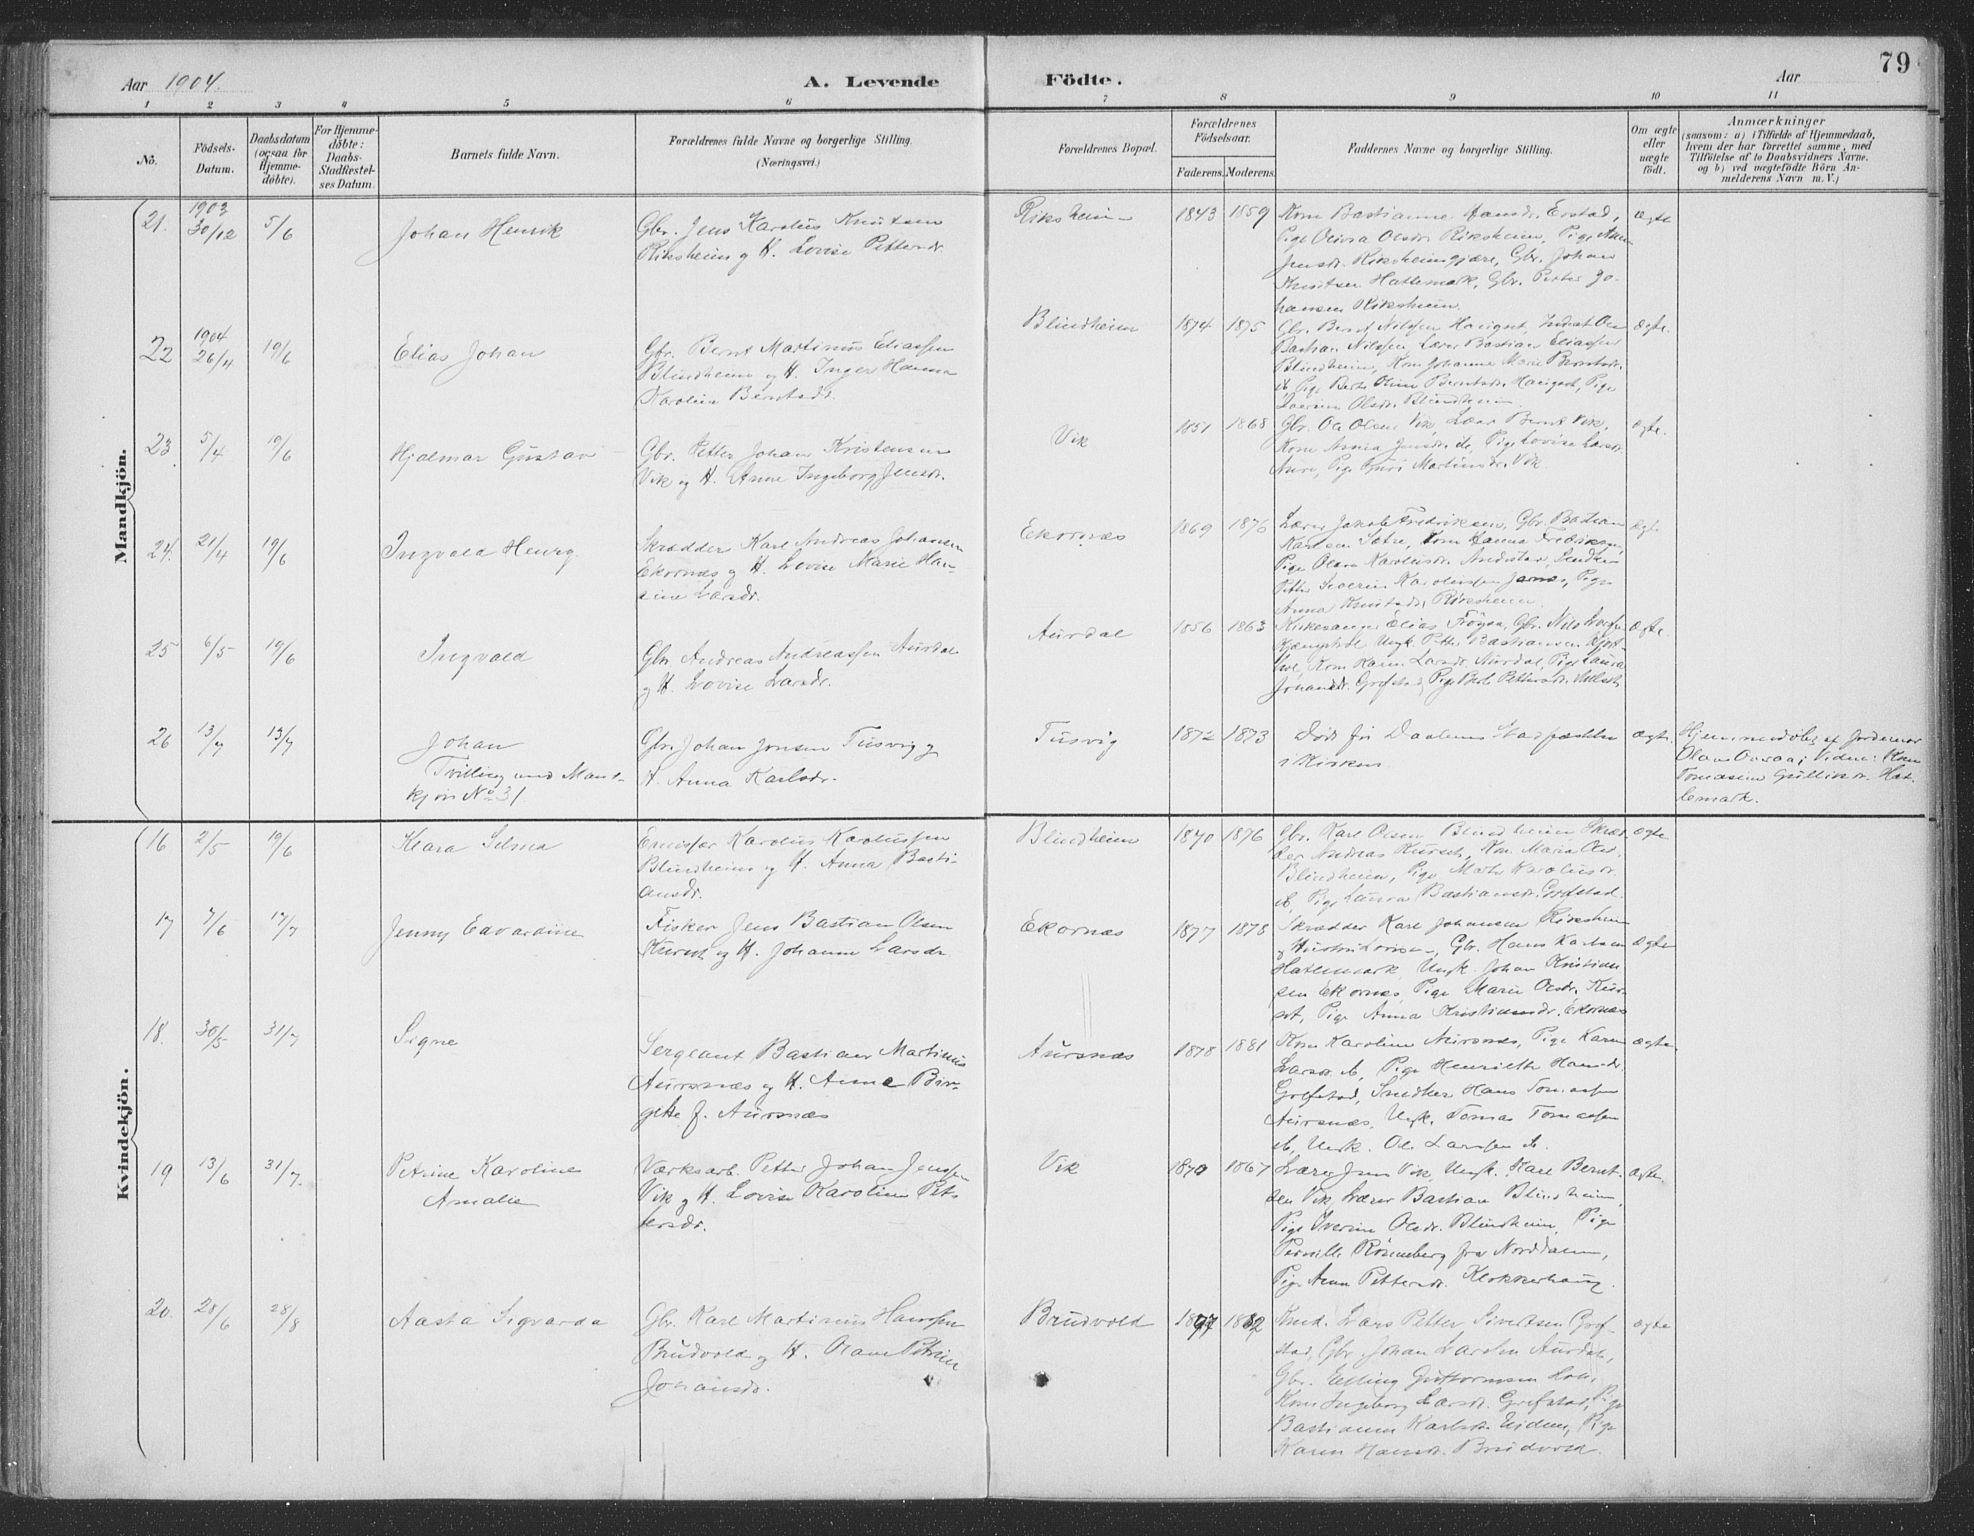 79
Aar 1904.
A. Levende Födte.
Aar
1 2 3 4 5 6 7 8 9 10 11
No.
Födsels-Datum.
Daabsdatum (ogsaa for Hjemme-døbte).
For Hjemme-døbte: Daabs-Stadfæstel-ses Datum.
Barnets fulde Navn.
Forældrenes fulde Navne og borgerlige Stilling. (Næringsvei.)
Forældrenes Bopæl.
Forældrenes Födselsaar.
Faderens. Moderens.
Faddernes Navne og borgerlige Stilling.
Om ægte eller uægte födt.
Anmærkninger
(saasom: a) i Tilfælde af Hjemmedaab,
hvem der har forrettet samme, med
Tilföielse af to Daabsvidners Navne.
og b) ved uægtefödte Börn An-
melderens Navn m. V.)
Mandkjön.
21. 1903 30/12 5/6 Johan Henrik
Gbr. Jens Karolus Knutsen
Riksheim og H. Lovise Pettersdr.
Riksheim 1843 1859
Kom Bastianne Hansdr. Erstad,
Pige Olivia Olsdr. Riksheim, Pige
Jensdr. Riksheimgjære, Gbr. Johan
Knutsen Hatlemark, Gbr. Petter Jo-
hansen Riksheim
ægte
22 1904 26/4 19/6 Elias Johan
Gbr. Bernt Martinus Eliassen
Blindheim og H. Inger Hanna
Karolina Berntsdr.
Blindheim 1874 1875
Gbr. Bernt Nilssen
Bastian Nilssen, Lærer Bastian Eliassen
Blindheim, Kom Johanna Marie Berntsdr.
Olsdr. Blindheim
ægte
23 5/4 19/6 Hjalmar Gustav
Gbr. Petter Johan Kristensen
Vik og H. Anne Ingeborg Jensdr.
Vik 1851 1868
Gbr. Ole Olsen Vik, Lærer Bernt Vik,
Kom Anna Jensdr. do, Pige Lovise Larsdr.
Aure, Pige Guri Martinsdr. Vik
ægte.
24. 21/4 19/6 Ingvald Henry
Skrædder Karl Andreas Johansen
Ekornæs og H. Lovise Marie Han-
sine Larsdr.
Ekornæs 1869 1876
Lærer Jakob Fredriksen, Gbr. Bastian
Karlsen Sætre, Kom Hanna Fredriksen,
Pige Olava Karolusdr. Andestad, Snedker
Petter Severin Karolussen Jarnes, Pige
Anna Knutsdr. Riksheim.
ægte
25 6/5 19/6 Ingvald
Gbr. Andreas Andreassen Aurdal
og H. Lovise Larsdr.
Aurdal 1856 1863
Kirkesanger Elias Tröyen, Gbr. Nils
Ungk. Petter Bastiansen
Kom Karen Larsdr. Aurdal, Pige Laura
Johansdr. Grefstad, Pige Berte Pettersdr.
ægte.
26 13/7 13/7 Johan
Tvilling med Mand-
kjön No 31
Gbr. Johan Jonsen Tusvig og
H. Anna Karlsdr.
Tusvig 1872 1873
Döde för Daabens Stadfæstelse
i Kirken
ægte.
Hjemmedöbt af Jordemor
Olave Overaa; Vidne: Kom
Tomasine Gulliksdr. Hat-
lemark.
Kvindekjön.
16 2/5 19/6 Klara Selma
Karolus Karolussen
Blindheim og H. Anna Basti-
ansdr.
Blindheim 1870 1876
Gbr. Karl Olsen Blindheim, Skræd-
der Andreas Kursæt, Kom Maria Olsd.
Blindheim, Pige Marte Karolusdr.
do, Pige Laura Bastiansdr. Grefstad.
ægte
17 7/6 17/7 Jenny Edvardine
Fisker Jens Bastian Olsen
Kursæt og H. Johanne Larsdr.
Ekornæs 1877 1878
Skrædder Karl Johansen Riksheim
og Hustru Lovise, Gbr. Hans Karlsen
Hatlemark, Ungk. Johan Kristian-
sen Ekornæs, Pige Marie Olsdr. Kur-
sæt, Pige Anna Kristiansdr. Ekornæs
ægte
18. 30/5 31/7 Signe
Sergeant Bastian Martinus
Aursnæs og H. Anne Bir-
gitte f. Aursnæs
Aursnæs 1878 1881
Kom Karoline Aursnæs, Pige Karen
Larsdr. do, Pige Henriette Hansdr.
Grefstad, Snedker Hans Tomassen
Aursnæs, Ungk. Tomas Tomassen
do, Ungk. Ole Larssen do.
ægte.
19 13/6 31/7. Petrine Karoline
Amalie
Værksarb. Petter Johan Jenssen
Vik og H. Lovise Karoline Pet-
tersdr.
Vik 1870 1867
Lærer Jens Vik, Ungk. Karl Bernt-
sen Vik, Lærer Bastian Blindheim,
Pige Iverine Olsdr. Blindheim, Pige
Pernille Rönneberg fra Norddalen,
Pige Anna Pettersdr. Klokkerhaug.
ægte.
20. 28/6 28/8 Aasta Sigvarda
Gbr. Karl Martinus Hanssen
Brudvold og H. Olave Petrine
Johansdr.
Brudvold 1877 1882
Lars Petter Sivertsen Gref-
stad, Gbr. Johan Larssen Aurdal,
Gbr. Elling Guttormsen
Kom Ingeborg Larsdr. Grefstad, Pige
Bastianna Karlsdr. Eidem, Pige
Karen Hansdr. Brudvold.
ægte